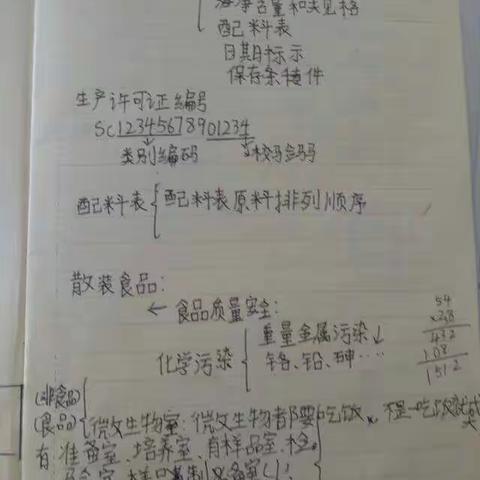 海净含量和规格
配料表
日期标示
保存条件
生产许可证编号
SC12345678901234
类别编码 校验码
配料表{配料表原料排列顺序
散装食品:
← 食品质量安全:
化学污染{重量金属污染↓
铬、铅、砷……
54
×28
432
108
1512
(非食品)
(食品){微生物室:微生物都要吃饭,不是吃饭就是
有准备室、培养室、有样品室、检